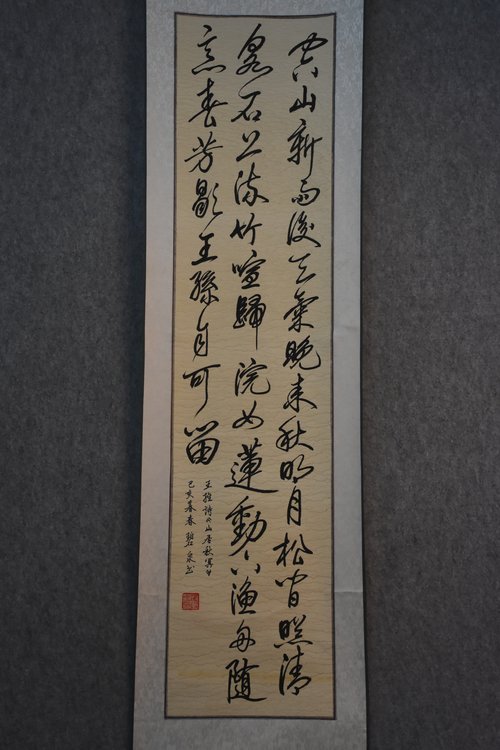 空山新雨後天氣晚来秋明月松间照清
泉石上流竹喧歸浣女蓮動下漁舟隨
意春芳歇王孫自可留
王維詩山居秋
己亥暮春碧泉书